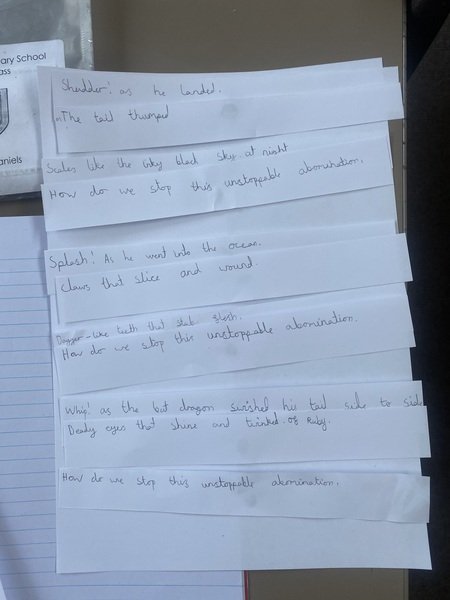 ary School
ass
aniels
Shudder! as he landed.
The tail thumped
Scales like the inky black sky at night
How do we stop this unstoppable abomination.
Splash! As he went into the ocean.
Claws that slice and wound.
Dagger-like teeth that stab flesh.
How do we stop this unstoppable abomination.
Whip! as the bat dragon swished his tail side to side
Deadly eyes that shine and twinked of Ruby.
How do we stop this unstoppable abomination.